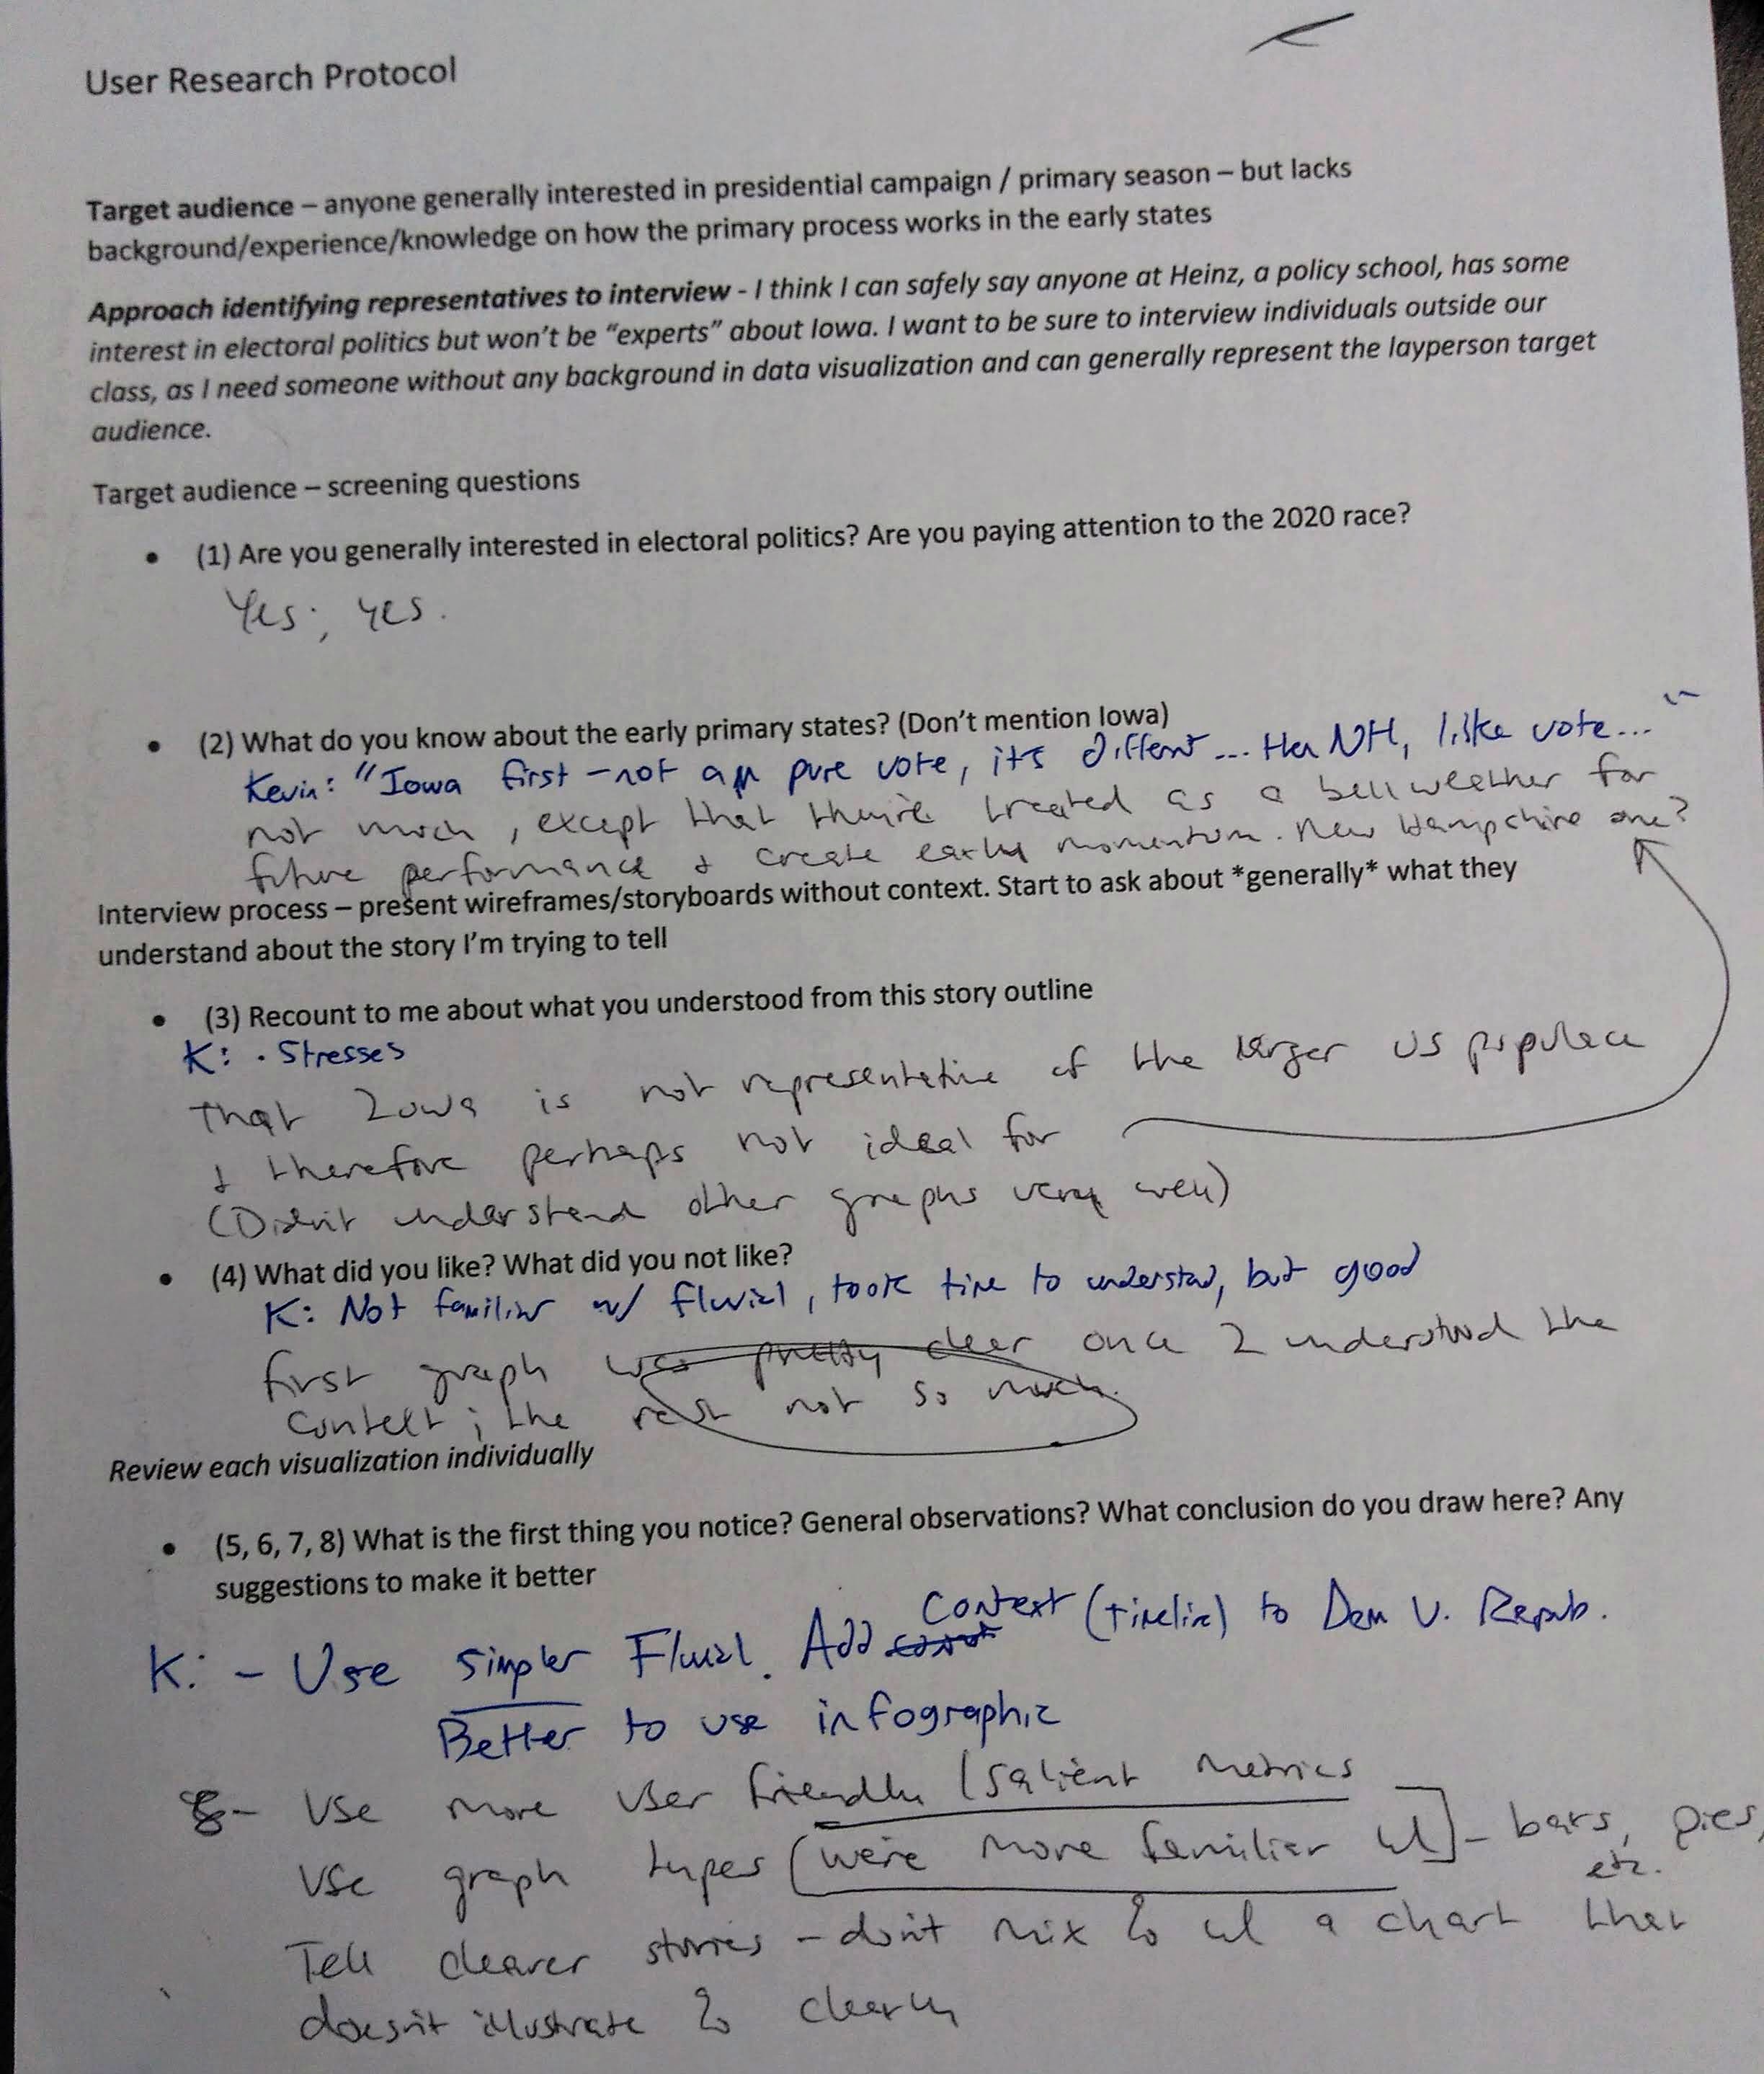 User Research Protocol
Target audience – anyone generally interested in presidential campaign / primary season – but lacks
background/experience/knowledge on how the primary process works in the early states
Approach identifying representatives to interview - I think I can safely say anyone at Heinz, a policy school, has some
interest in electoral politics but won't be “experts” about Iowa. I want to be sure to interview individuals outside our
class, as I need someone without any background in data visualization and can generally represent the layperson target
audience.
Target audience – screening questions
• (1) Are you generally interested in electoral politics? Are you paying attention to the 2020 race?
Yes; yes.
• (2) What do you know about the early primary states? (Don't mention Iowa)
Kevin: "Iowa first - not a pure vote, its different... then NH, like vote..."
not much, except that they're treated as a bellweather for
future performance & create early momentum. New Hampshire one?
Interview process – present wireframes/storyboards without context. Start to ask about *generally* what they
understand about the story I'm trying to tell
• (3) Recount to me about what you understood from this story outline
K: · Stresses
That Iowa is not representative of the larger US populace
& therefore perhaps not ideal for
(Didn't understand other graphs very well)
• (4) What did you like? What did you not like?
K: Not familiar w/ fluvial, took time to understand, but good
first graph was pretty clear once I understood the
context; the rest not so much.
Review each visualization individually
• (5, 6, 7, 8) What is the first thing you notice? General observations? What conclusion do you draw here? Any
suggestions to make it better
K: - Use simpler Fluvial. Add Context (timeline) to Dem v. Repub.
Better to use infographic
8- Use more user friendly / salient metrics
Use graph types (we're more familiar w/] - bars, pies,
etc.
Tell clearer stories - don't mix % w/ a chart that
doesn't illustrate % clearly